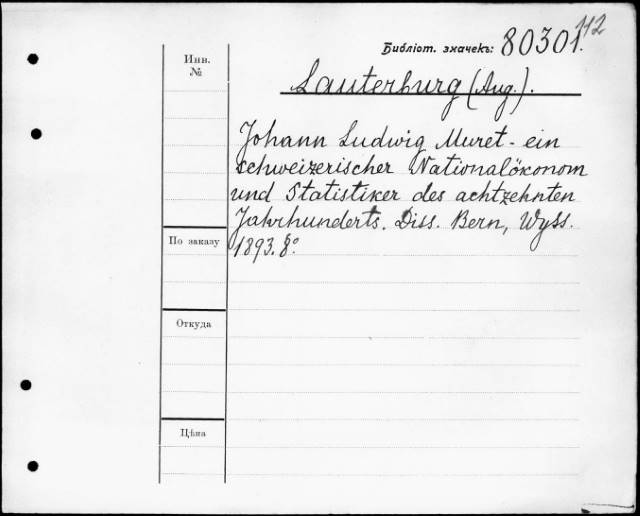 112
Библіот. значекъ: 80301.
Инв.
№
Lauterburg (Aug.).
Johann Ludwig Muret - ein
schweizerischer Nationalökonom
und Statistiker des achtzehnten
Jahrhunderts. Diss. Bern, Wyss.
1893. 8º
По заказу
Откуда
Цѣна